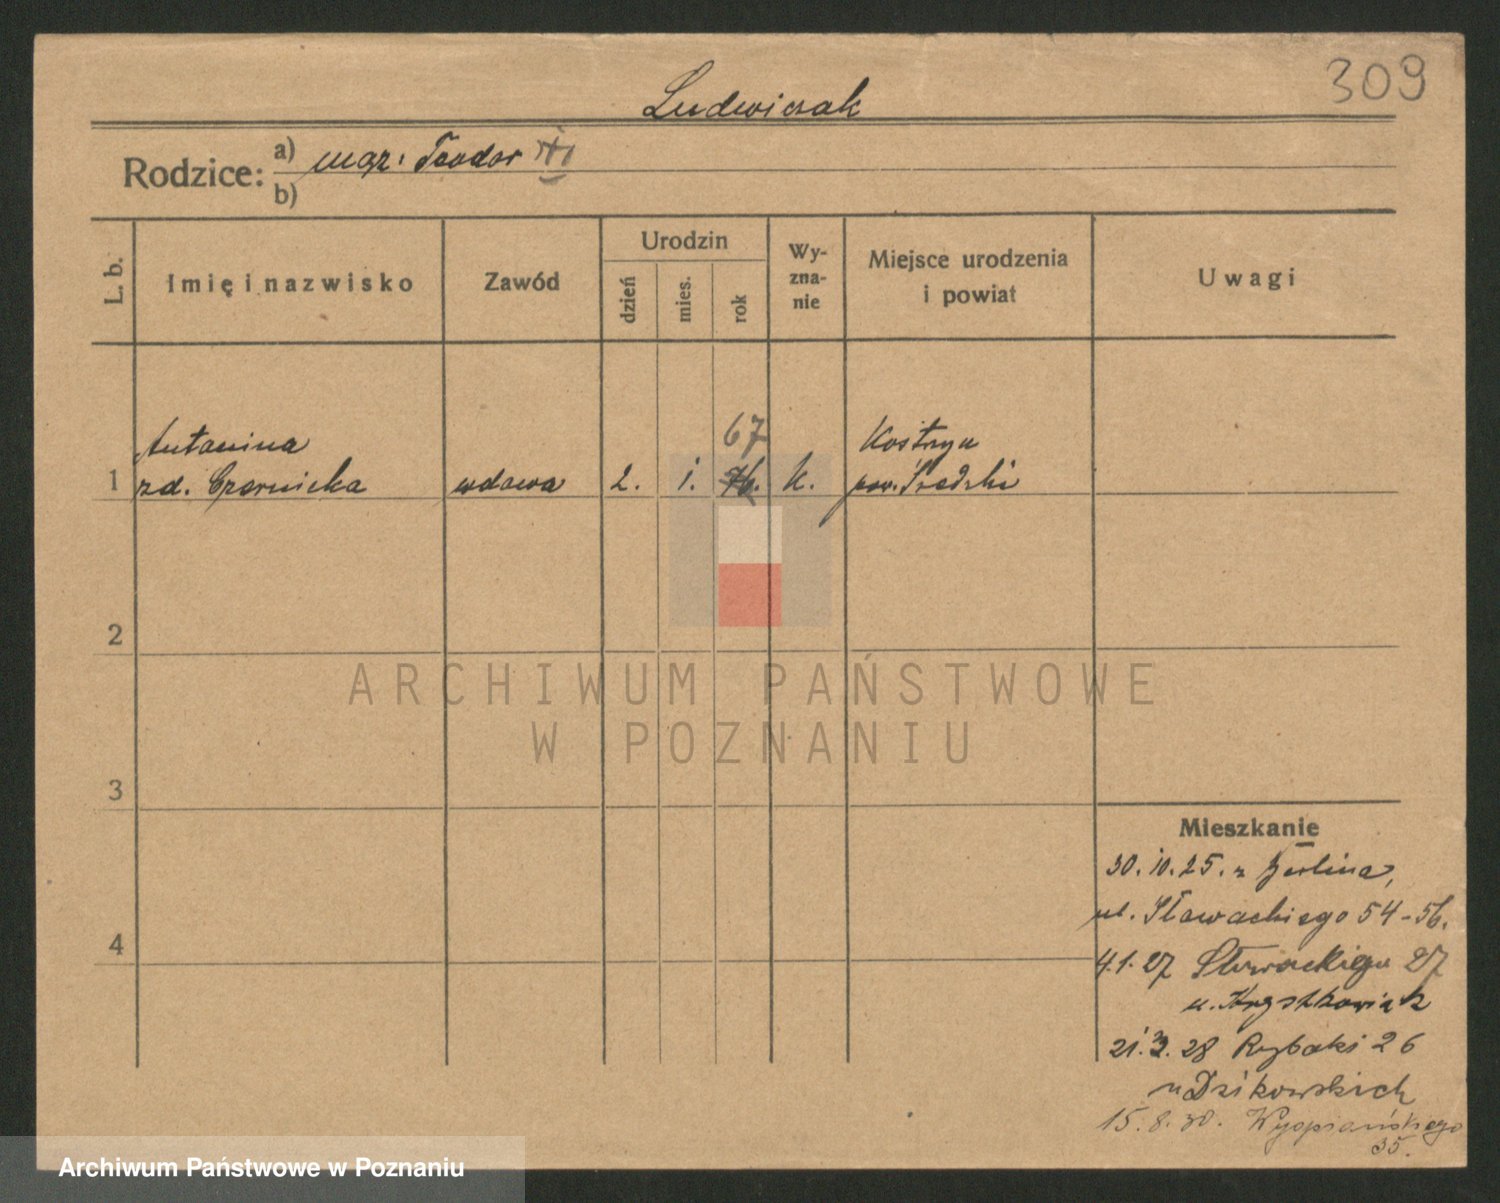 309
Ludwiczak
Rodzice: a) mąż: Teodor
b)
L. b. Imię i nazwisko Zawód Urodzin dzień mies. rok Wy-zna-nie Miejsce urodzenia i powiat Uwagi
Antonina 67 Kostrzyn
1 zd. Czarnicka wdowa 2. 1. 76. k. pow. Średzki
2
3
4
ARCHIWUM PAŃSTWOWE
W POZNANIU
Mieszkanie
30.10.25. z Berlina,
ul. Słowackiego 54-56.
4.1.27 Słowackiego 27
u. Krysztkowiak
21.3.28 Rybaki 26
u Dzikowskich
15.8.30. Wyspiańskiego
35.
Archiwum Państwowe w Poznaniu